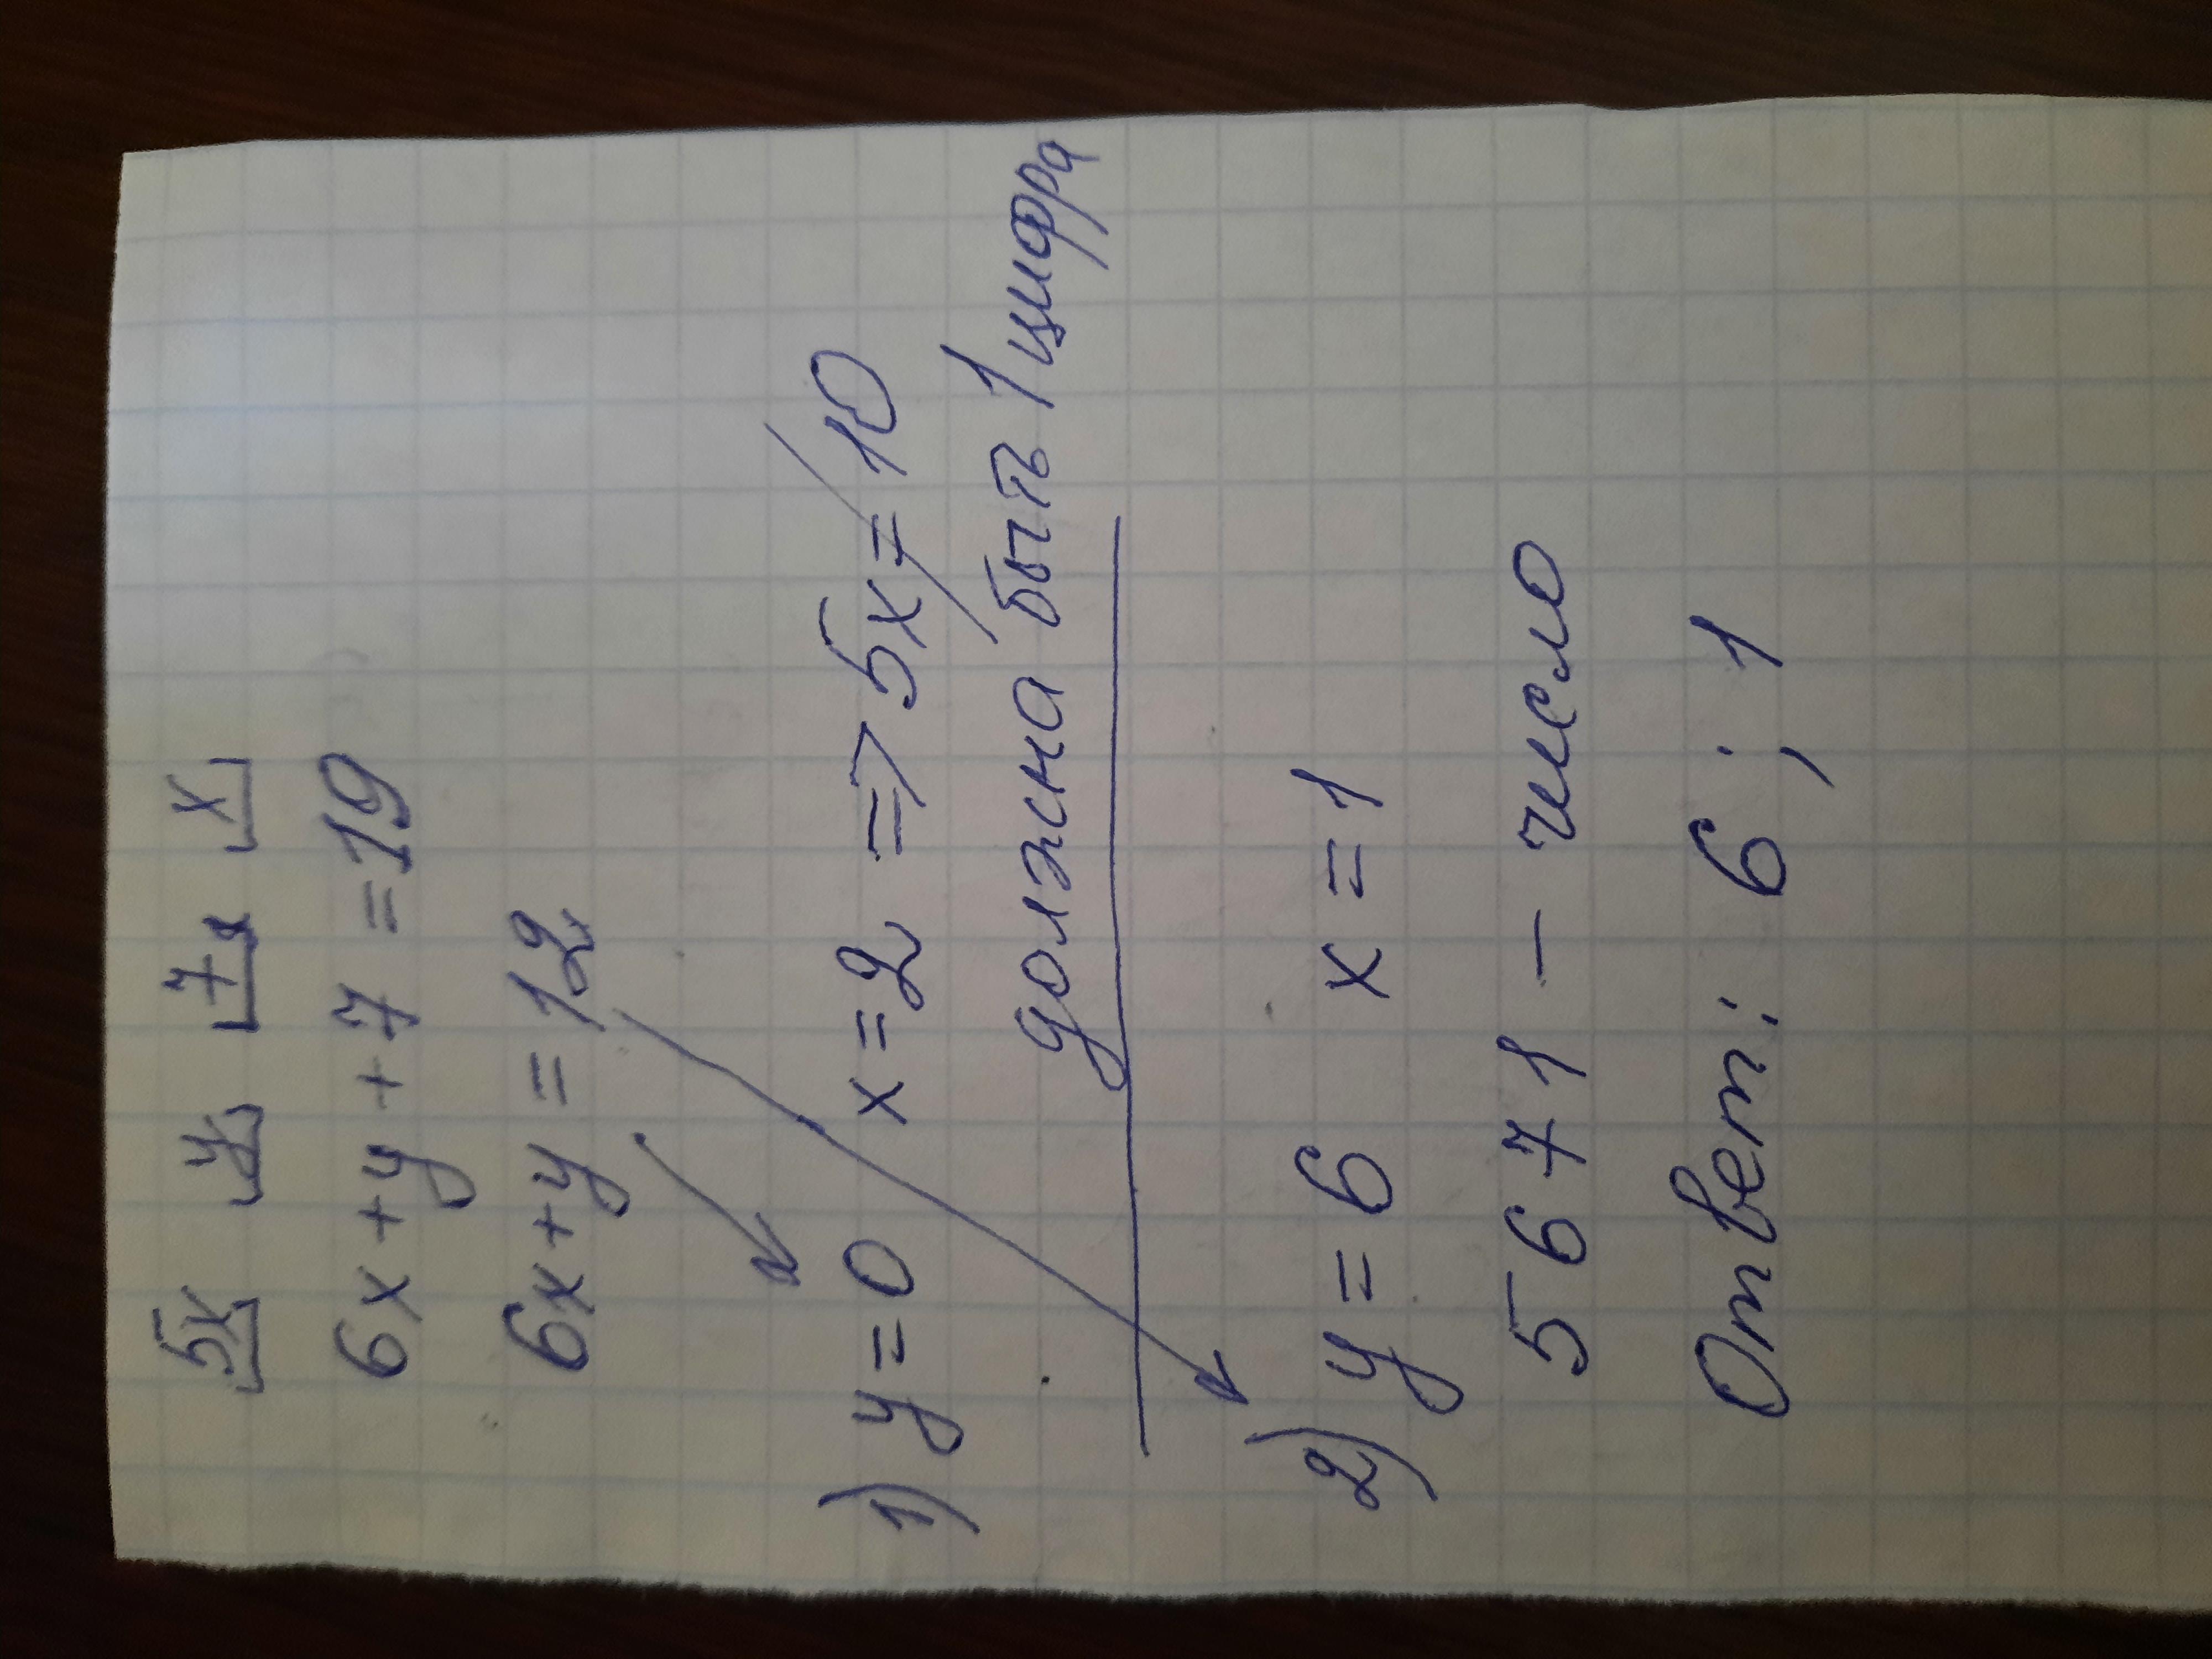 5x y 7 x
6x + y + 7 = 19
6x + y = 12
1) y = 0 x = 2 => 5x = 10
должна быть 1 цифра
2) y = 6 x = 1
5 6 7 1 - число
Ответ: 6 ; 1